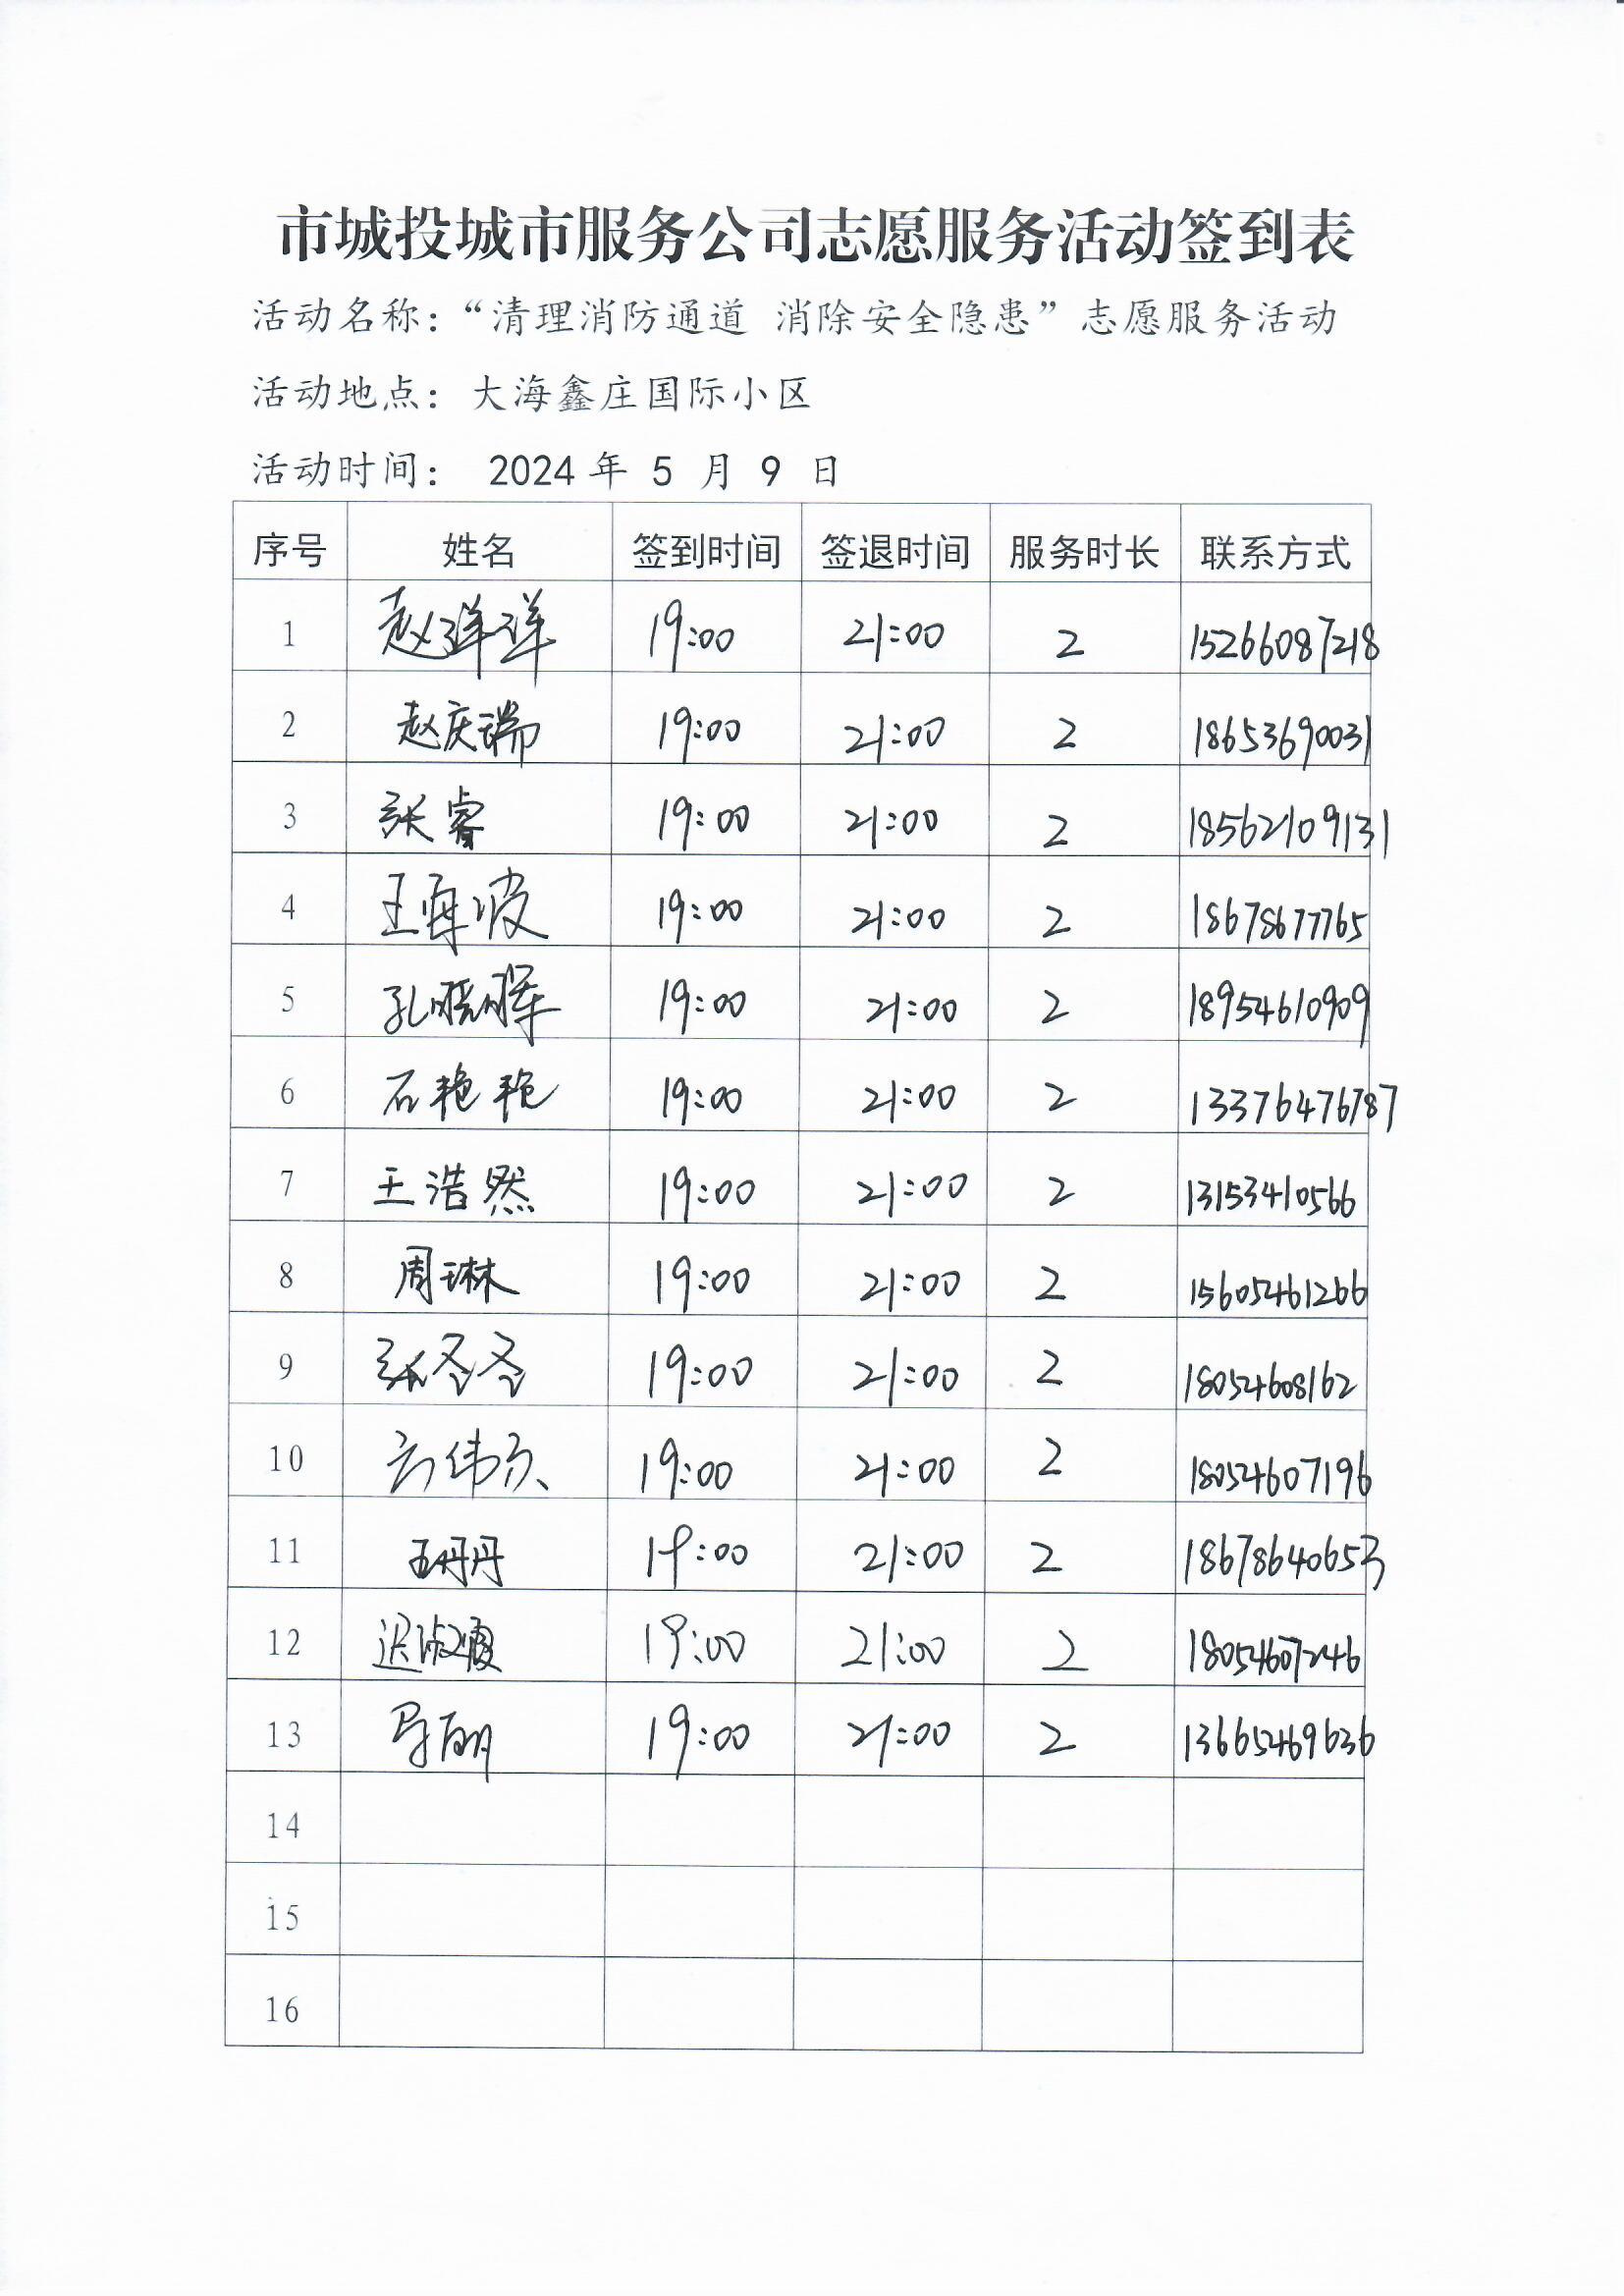 市城投城市服务公司志愿服务活动签到表
活动名称：“清理消防通道 消除安全隐患”志愿服务活动
活动地点：大海鑫庄国际小区
活动时间： 2024 年 5 月 9 日
序号 姓名 签到时间 签退时间 服务时长 联系方式
1 赵洋洋 19:00 21:00 2 15266087218
2 赵庆瑞 19:00 21:00 2 18653690031
3 张睿 19:00 21:00 2 18562109131
4 王海波 19:00 21:00 2 18678677765
5 孔晓晖 19:00 21:00 2 18954610909
6 石艳艳 19:00 21:00 2 13376476787
7 王浩然 19:00 21:00 2 13153410566
8 周琳 19:00 21:00 2 15605461266
9 张冬冬 19:00 21:00 2 18054608162
10 19:00 21:00 2 18054607196
11 王丹丹 19:00 21:00 2 18678640653
12 迟淑霞 19:00 21:00 2 18054607246
13 马丽 19:00 21:00 2 13665469636
14
15
16